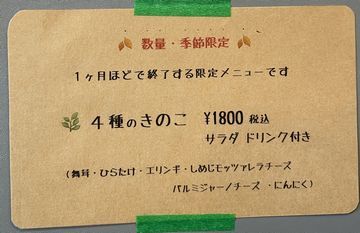 数量・季節限定
1ヶ月ほどで終了する限定メニューです
4種のきのこ ¥1800 税込
サラダ ドリンク付き
(舞茸・ひらたけ・エリンギ・しめじモッツァレラチーズ
パルミジャーノチーズ ・にんにく)